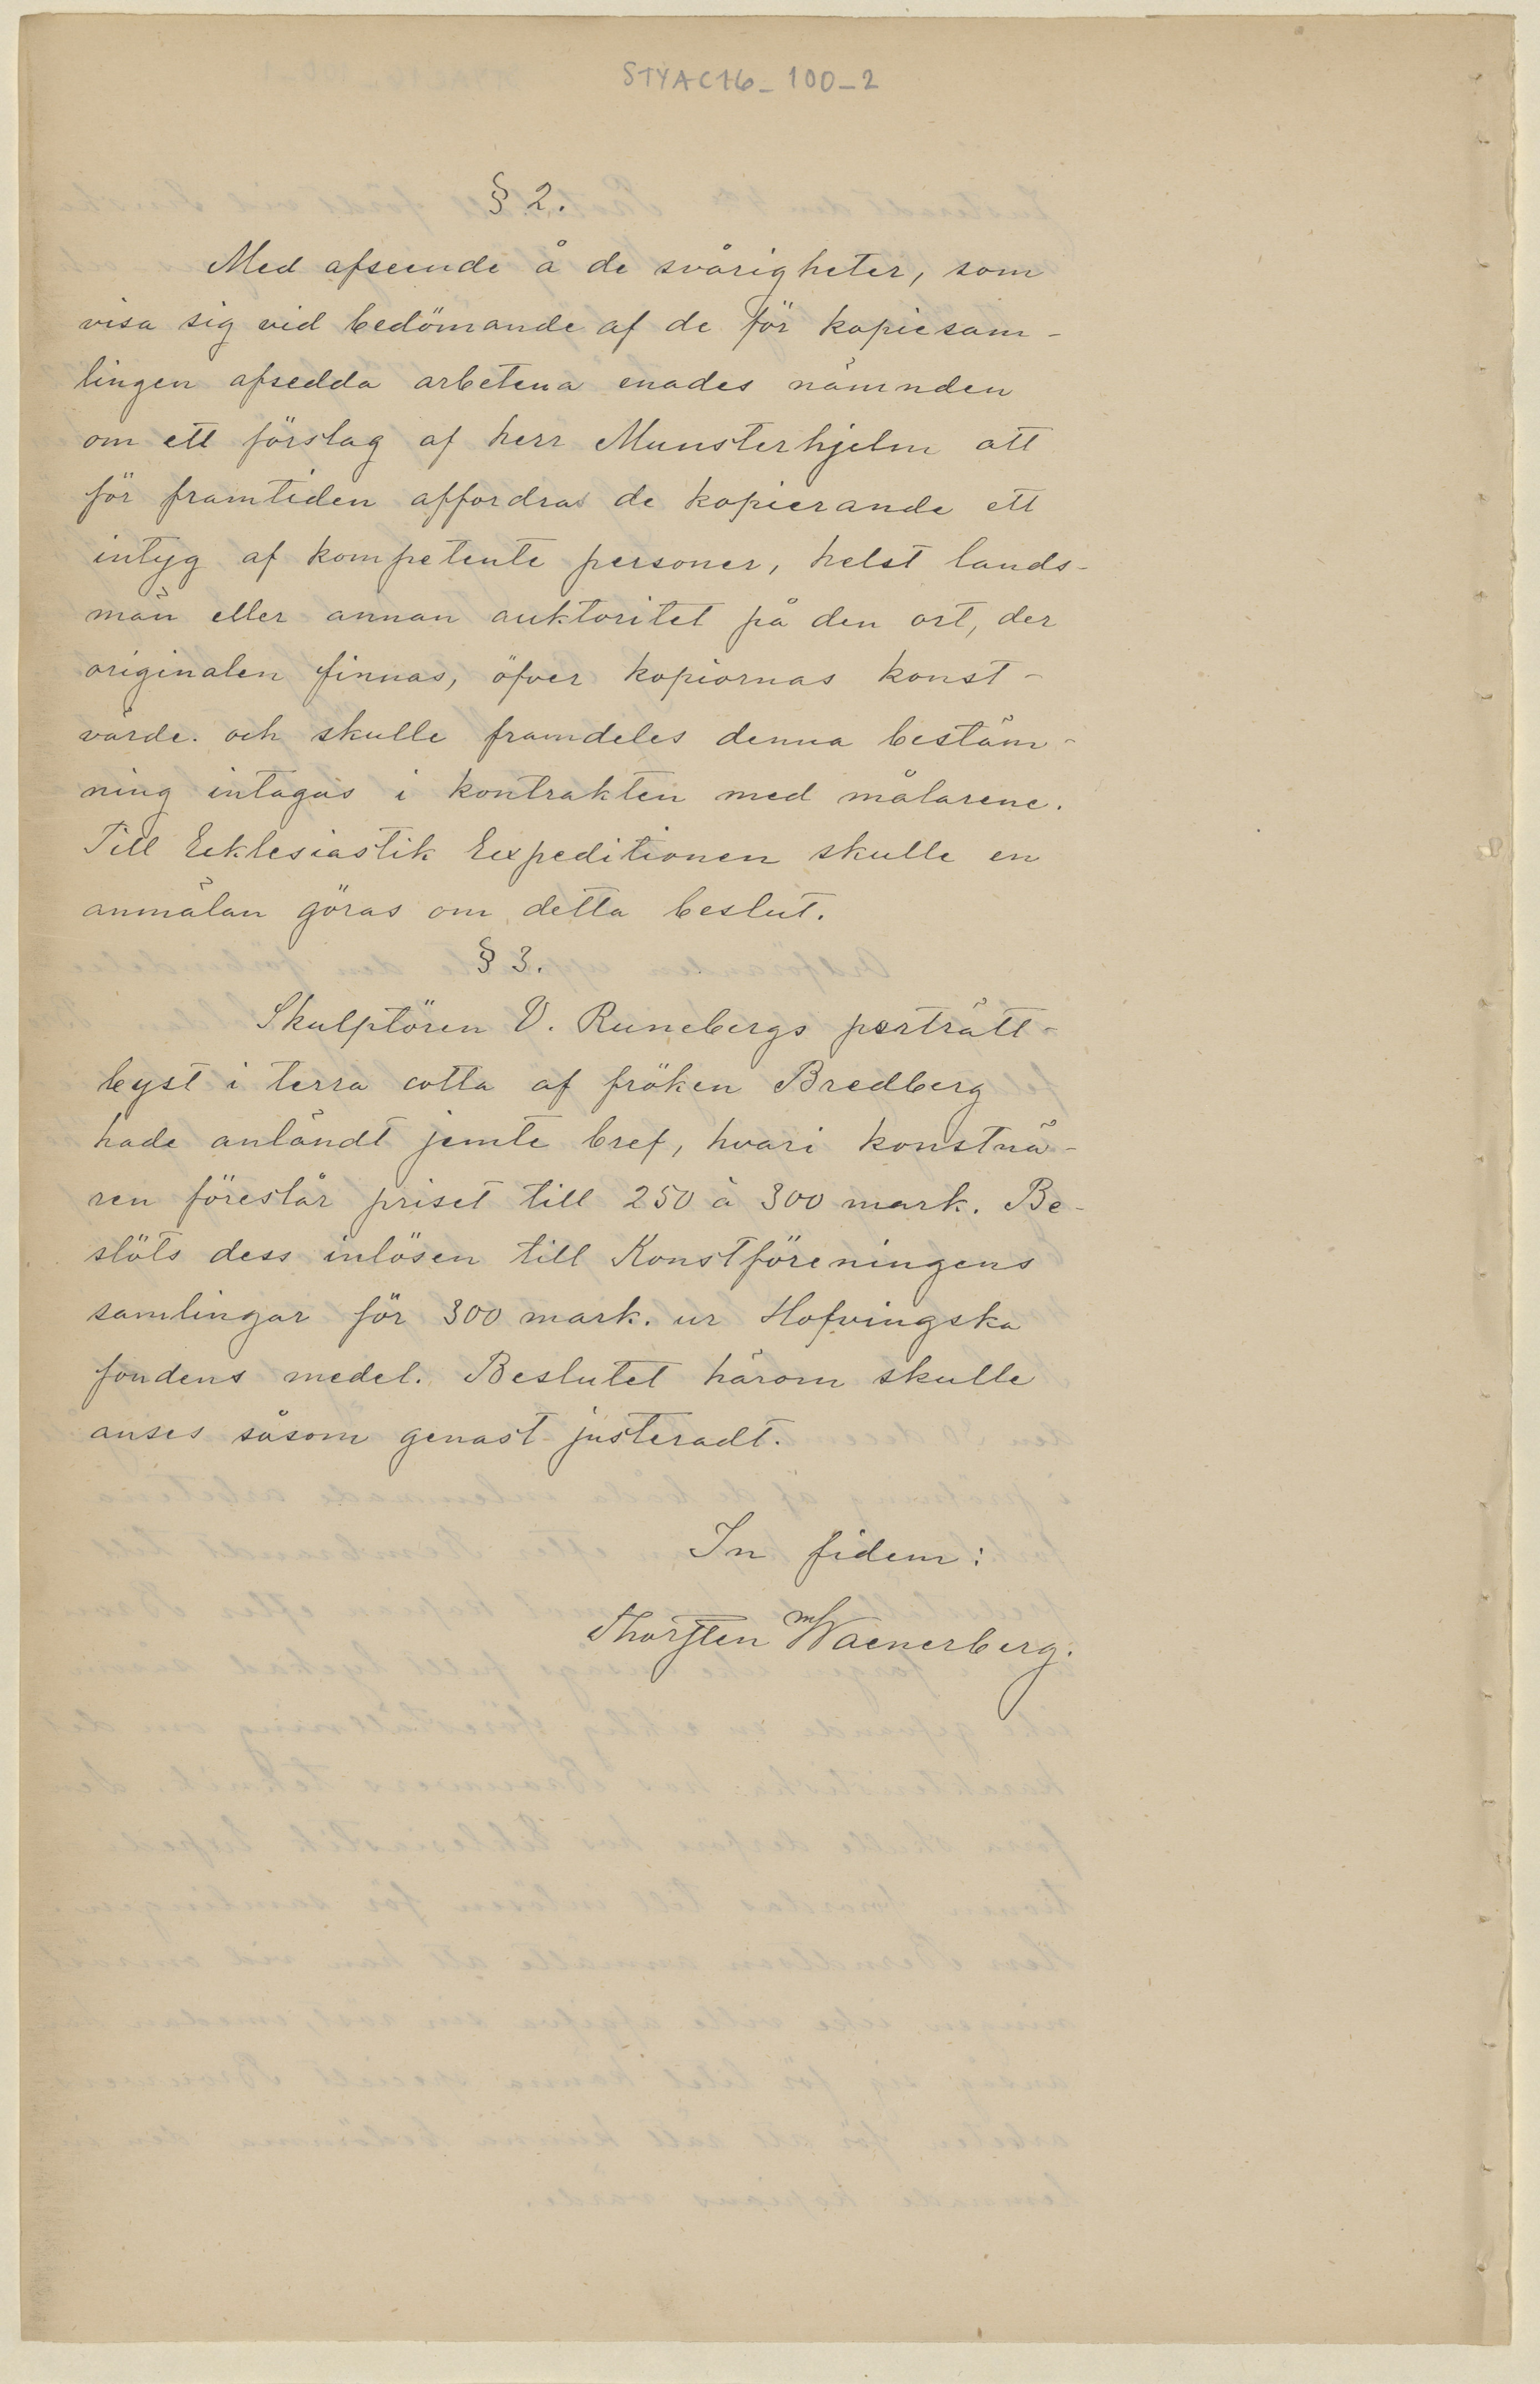 STYAC16_100_2
§ 2.
Med afseende å de svårigheter, som
visa sig vid bedömande af de för kopiesam-
lingen afsedda arbetena enades nämnden
om ett förslag af herr Munsterhjelm att
för framtiden affordra de kopierande ett
intyg af kompetente personer, helst lands-
män eller annan auktoritet på den ort, der
originalen finnas, öfver kopiornas konst-
värde. och skulle framdeles denna bestäm-
ning intagas i kontrakten med målarene.
Till Ecklesiastik Expeditionen skulle en
anmälan göras om detta beslut.
§ 3.
Skulptören V. Runebergs porträtt-
byst i terra cotta af fröken Bredberg
hade anländt jemte bref, hvari konstnä-
ren föreslår priset till 250 à 300 mark. Be-
slöts dess inlösen till Konstföreningens
samlingar för 300 mark. ur Hofvingska
fondens medel. Beslutet härom skulle
anses såsom genast justeradt.
In fidem:
Thorsten Waenerberg.